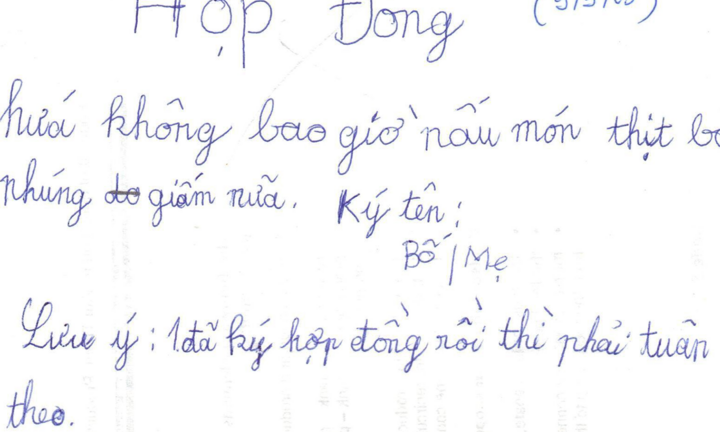 Hợp Đồng
hứa không bao giờ nấu món thịt bò
nhúng giấm nữa. Ký tên:
Bố / Mẹ
Lưu ý: 1 đã ký hợp đồng rồi thì phải tuân
theo.